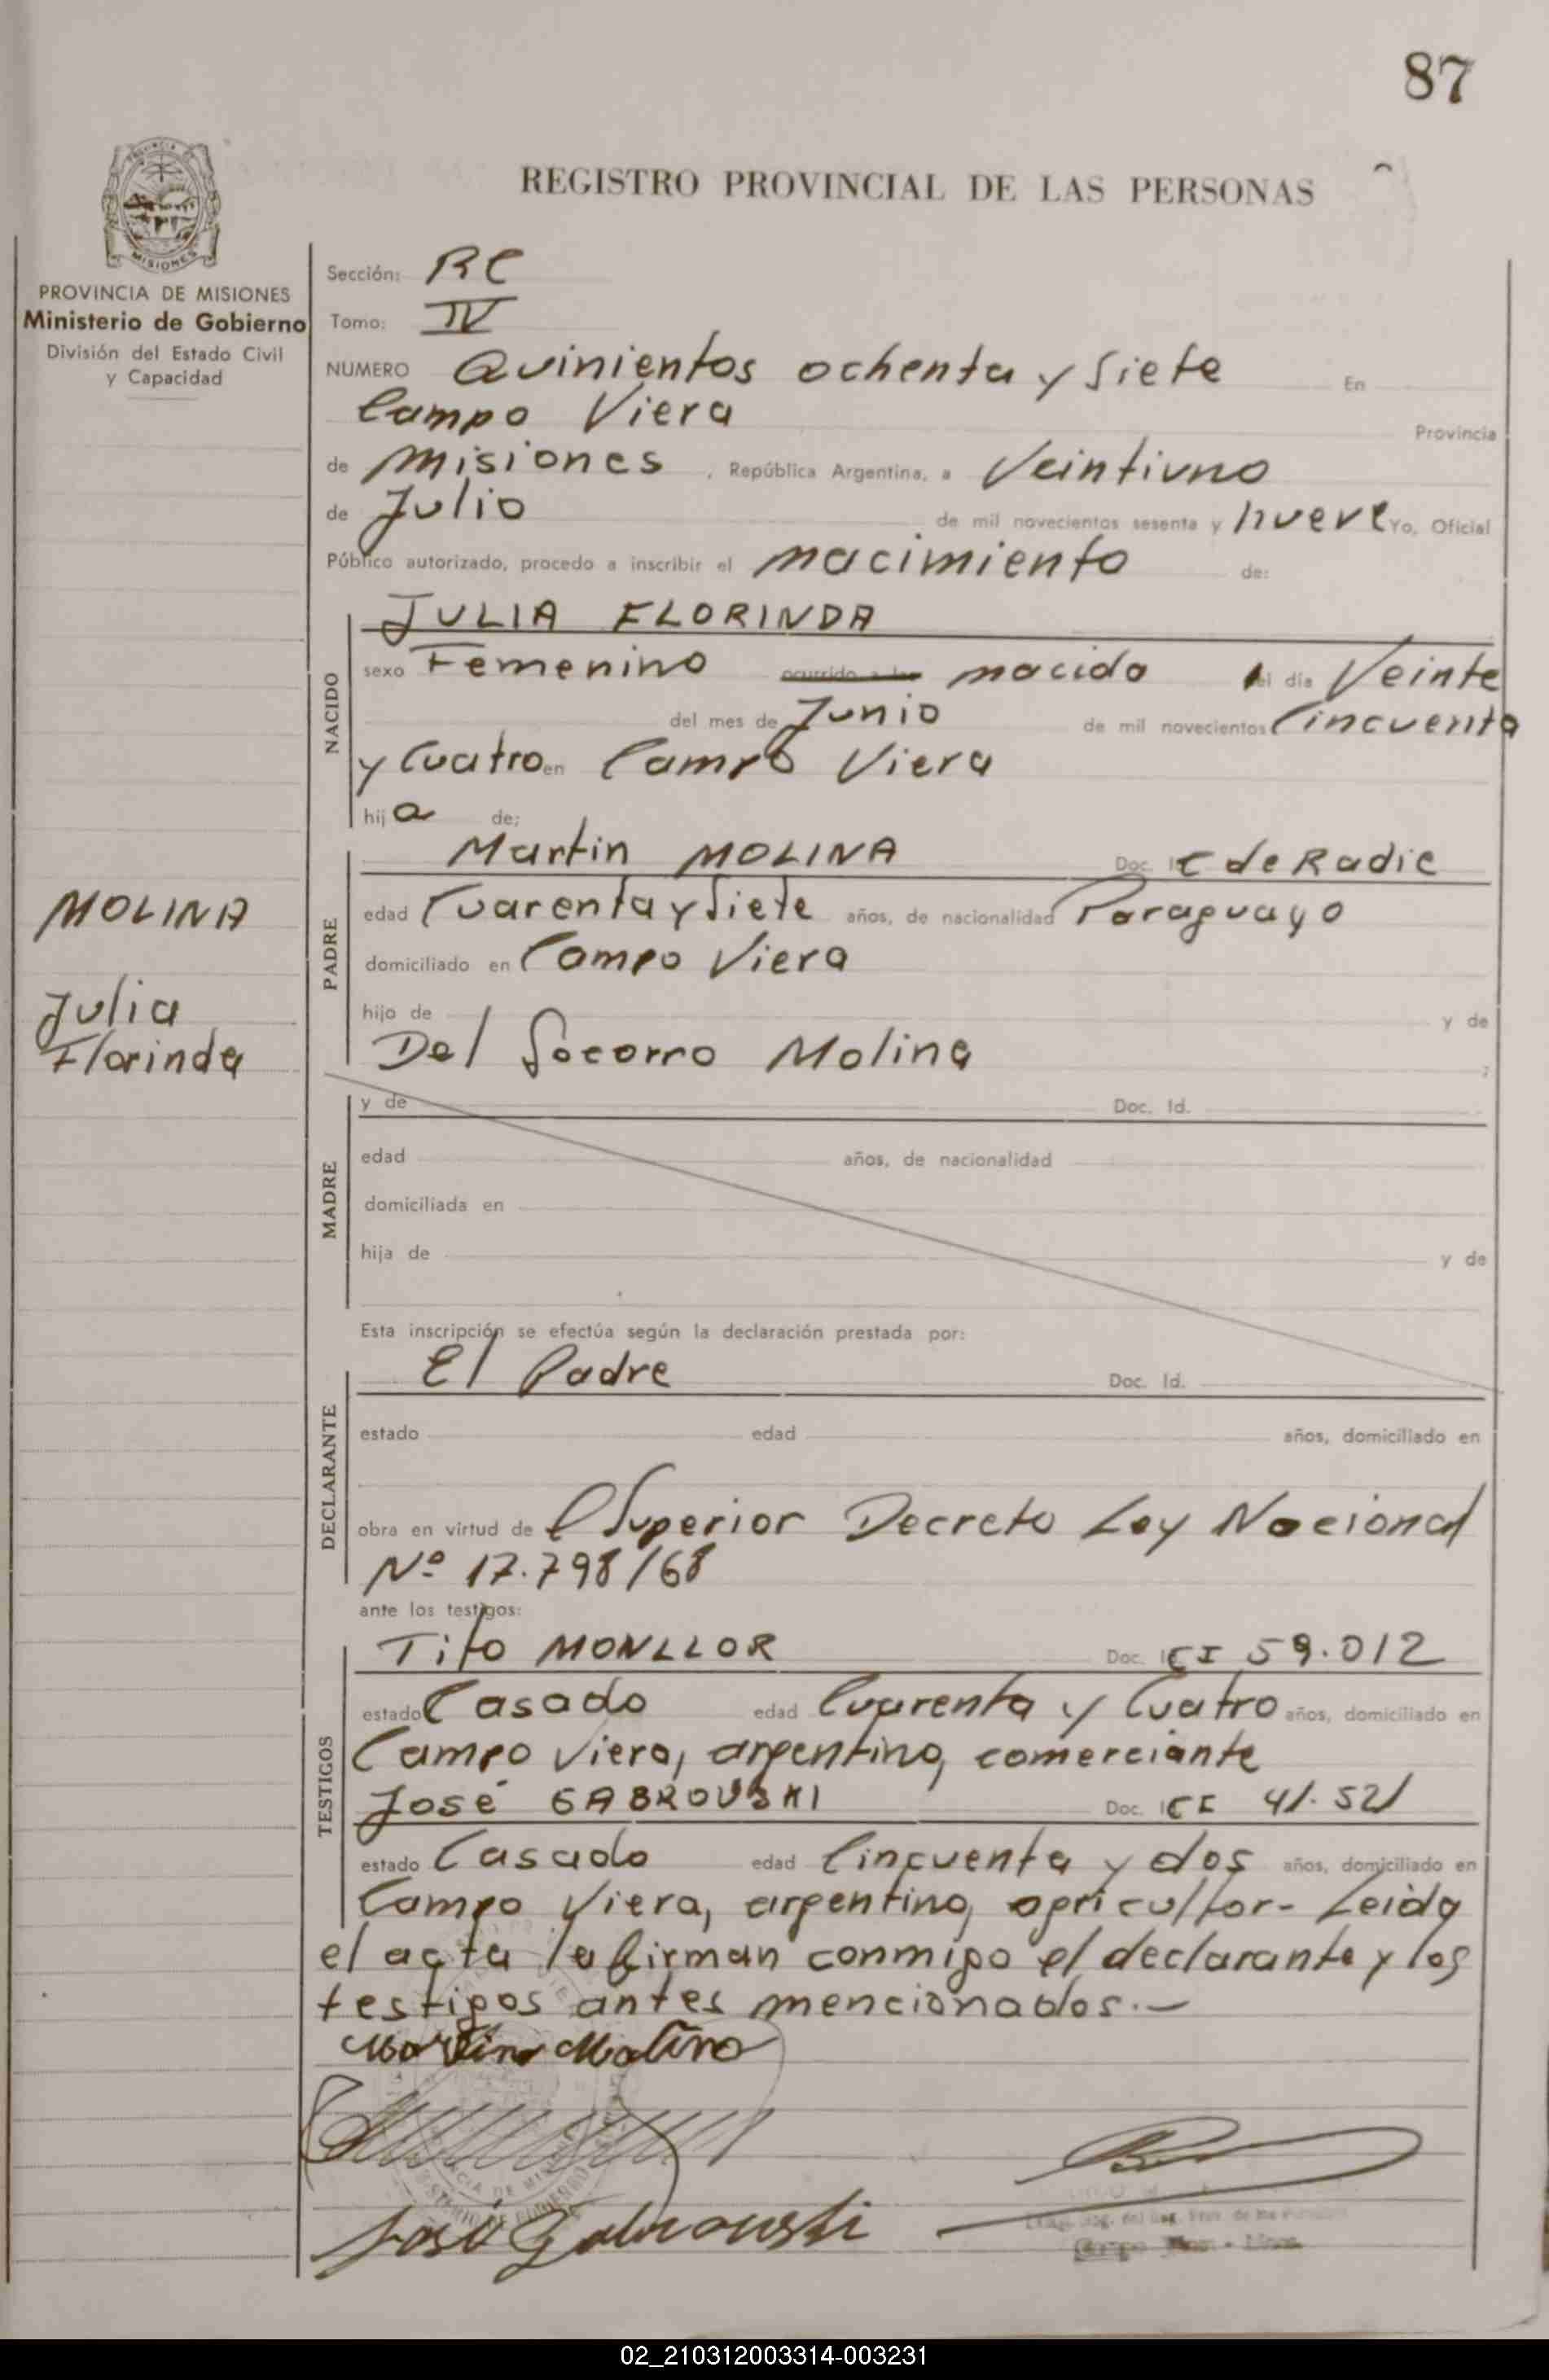 87
REGISTRO PROVINCIAL DE LAS PERSONAS
PROVINCIA DE MISIONES
Ministerio de Gobierno
División del Estado Civil
y Capacidad
Sección: RC
Tomo: IV
NUMERO Quinientos ochenta y Siete En
Campo Viera Provincia
de Misiones, República Argentina, a Veintiuno
de Julio de mil novecientos sesenta y nueve Yo, Oficial
Público autorizado, procedo a inscribir el nacimiento de:
NACIDO
JULIA FLORINDA
sexo Femenino nacida el día Veinte
del mes de Junio de mil novecientos Cincuenta
y Cuatro en Campo Viera
hija de:
MOLINA
Julia
Florinda
PADRE
Martin MOLINA Doc. C de Radic
edad Cuarenta y Siete años, de nacionalidad Paraguayo
domiciliado en Campo Viera
hijo de y de
Del Socorro Molina ;
MADRE
y de Doc. Id.
edad años, de nacionalidad
domiciliada en
hija de y de
Esta inscripción se efectúa según la declaración prestada por:
DECLARANTE
El Padre Doc. Id.
estado edad años, domiciliado en
obra en virtud de El Superior Decreto Ley Nacional
Nº 17.798/68
ante los testigos:
TESTIGOS
Tito MONLLOR Doc. CI 59.012
estado Casado edad Cuarenta y Cuatro años, domiciliado en
Campo Viera, argentino, comerciante
José GABROVSKI Doc. CI 41.521
estado Casado edad Cincuenta y dos años, domiciliado en
Campo Viera, argentino, agricultor- Leida
el acta la firman conmigo el declarante y los
testigos antes mencionados.-
Martin Molina
José Gabrowski
02_210312003314-003231